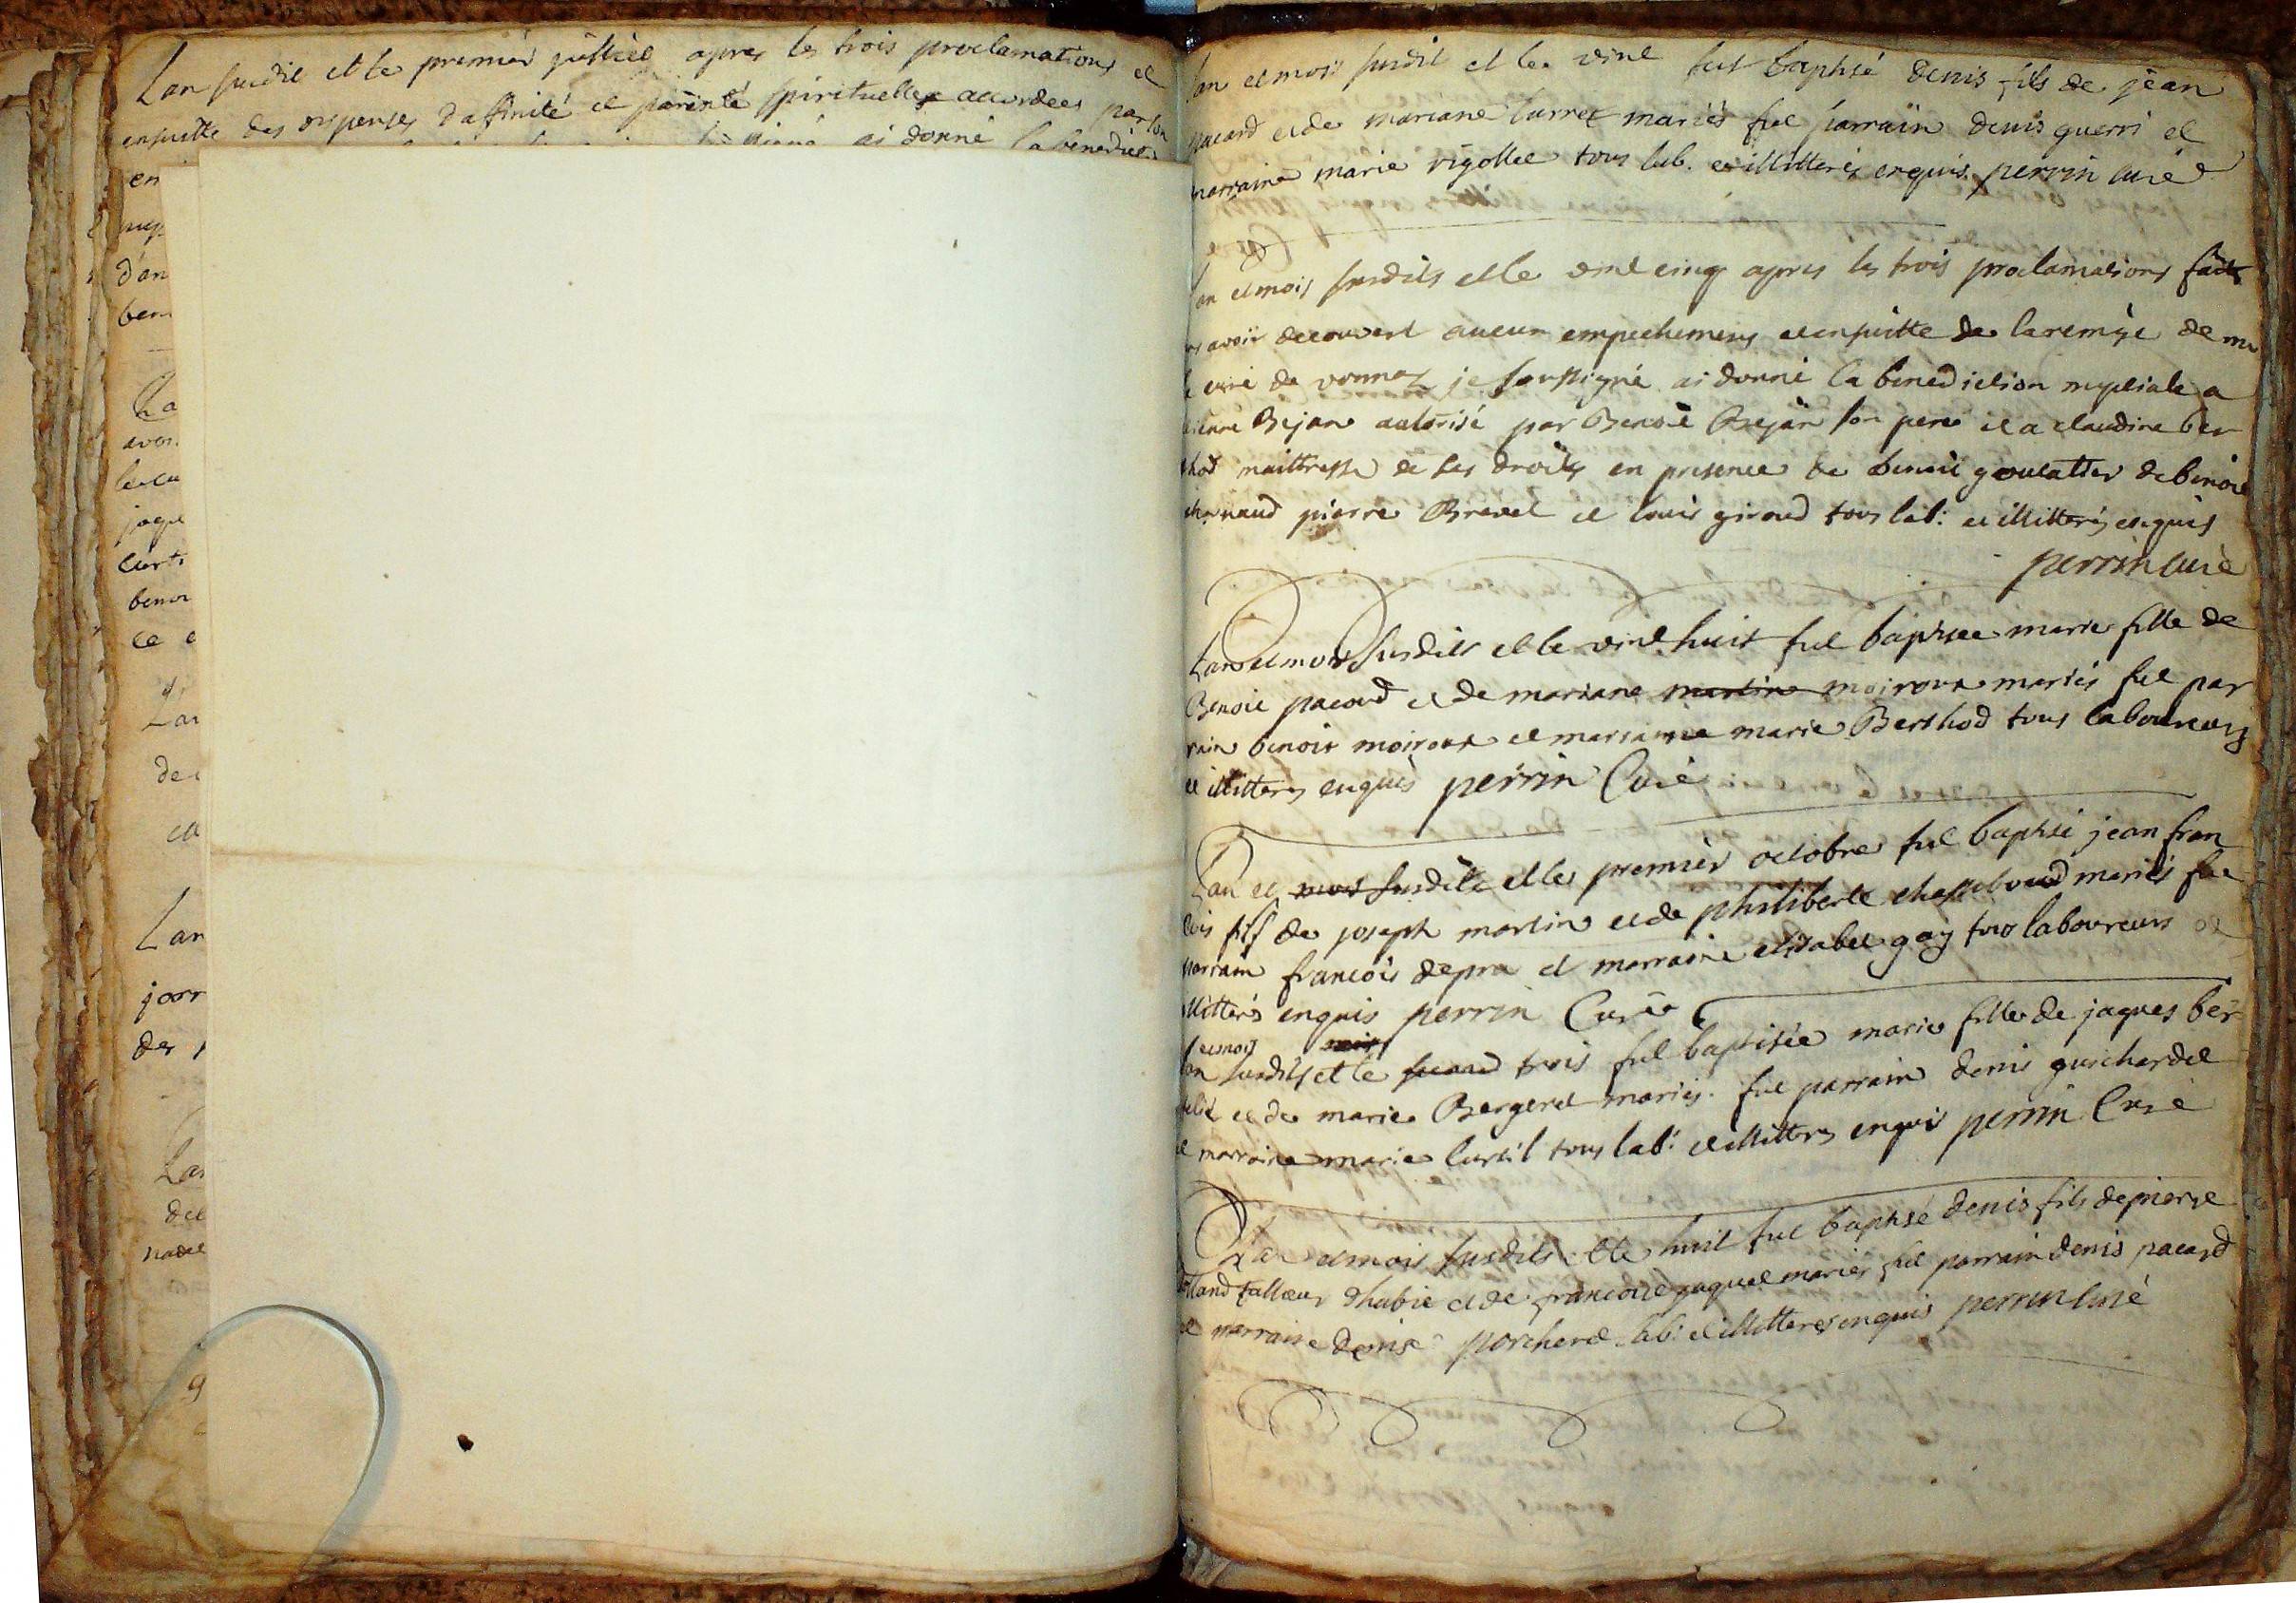 Lan susdit et le premier juillet apres les trois proclamations et
ensuitte des dispenses daffinité et parenté spirituelle accordees par son
ai donné la benedict
en
nup
dan
ben
La
avoi
le cu
jaqu
curt
benoi
ce e
Lan
de
Lan
jorr
des
Lan
del
nadet
lan et mois susdit et le vint fut baptisé denis fils de jean
pacard et de mariane curret mariés fut parrain denis guerri et
marraine marie rigollet tous lab. et illitterés enquis perrin curé
lan et mois susdits et le vint cinq apres les trois proclamations faits
avoir decouvert aucun empechemens et ensuitte de la remise de mr
le curé de vonnaz je soussigné ai donné la benediction nuptiale a
Bejan autorisé par Benoit Bejan son pere et a claudine ber
thod maittresse de ses droits en presence de benoit goulatter de benoit
pierre Brevet et louis giroud tous lab: et illitterés enquis
perrin curé
Lan et mois susdits et le vint huit fut baptisee marie fille de
Benoit pacard et de mariane martine moiroux mariés fut par
rain benoit moiroux et marraine marie Berthod tous laboureurs
et illitteres enquis perrin Curé
Lan et mois susdits et le premier octobre fut baptisé jean fran
cois fils de joseph martin et de philiberte chassiboud mariés fut
parrain francois depra et marraine elisabet gay tous laboureurs et
illitterés enquis perrin Curé
et mois mois
lan susdits et le second trois fut baptisée marie fille de jaques ber
et de marie Bergeret mariés. fut parrain denis guichardet
et marraine marie curtil tous lab: et illitteres enquis perrin Curé
Lan et mois susdits et le huit fut baptisé denis fils de pierre
talleur dhabit et de francoise jaquet mariés fut parrain denis pacard
et marraine denise porcheret lab: et illitteres enquis perrin curé